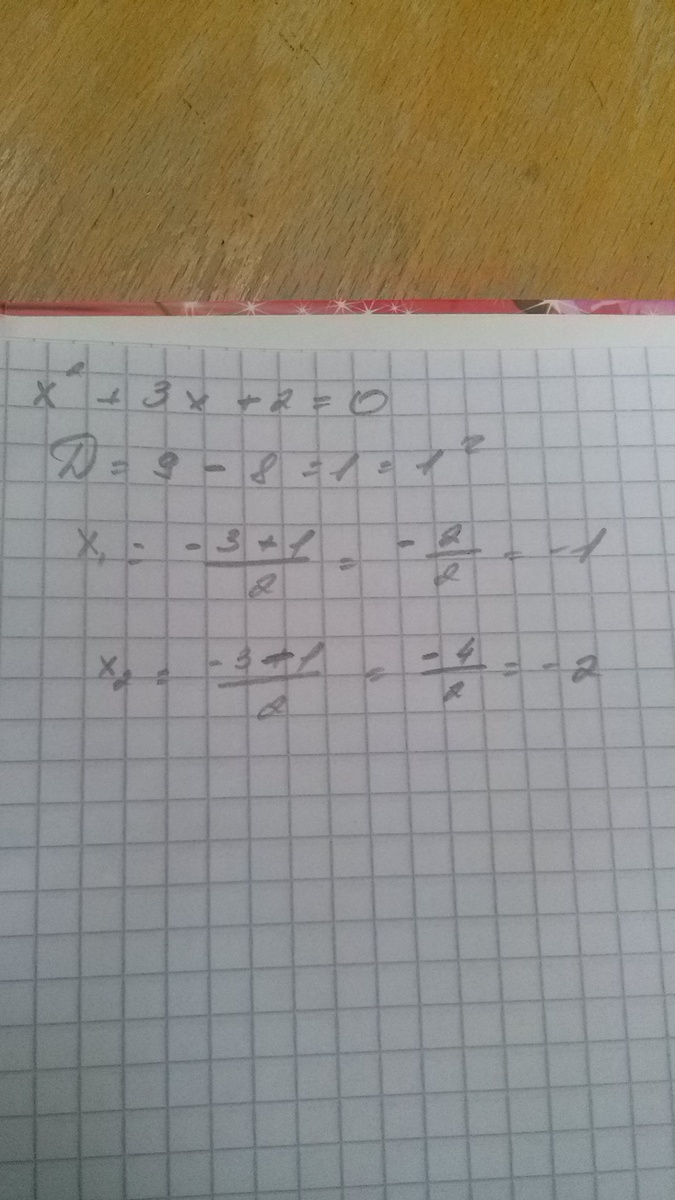 x² + 3x + 2 = 0
D = 9 - 8 = 1 = 1²
x₁ = -3+1/2 = -2/2 = -1
x₂ = -3-1/2 = -4/2 = -2